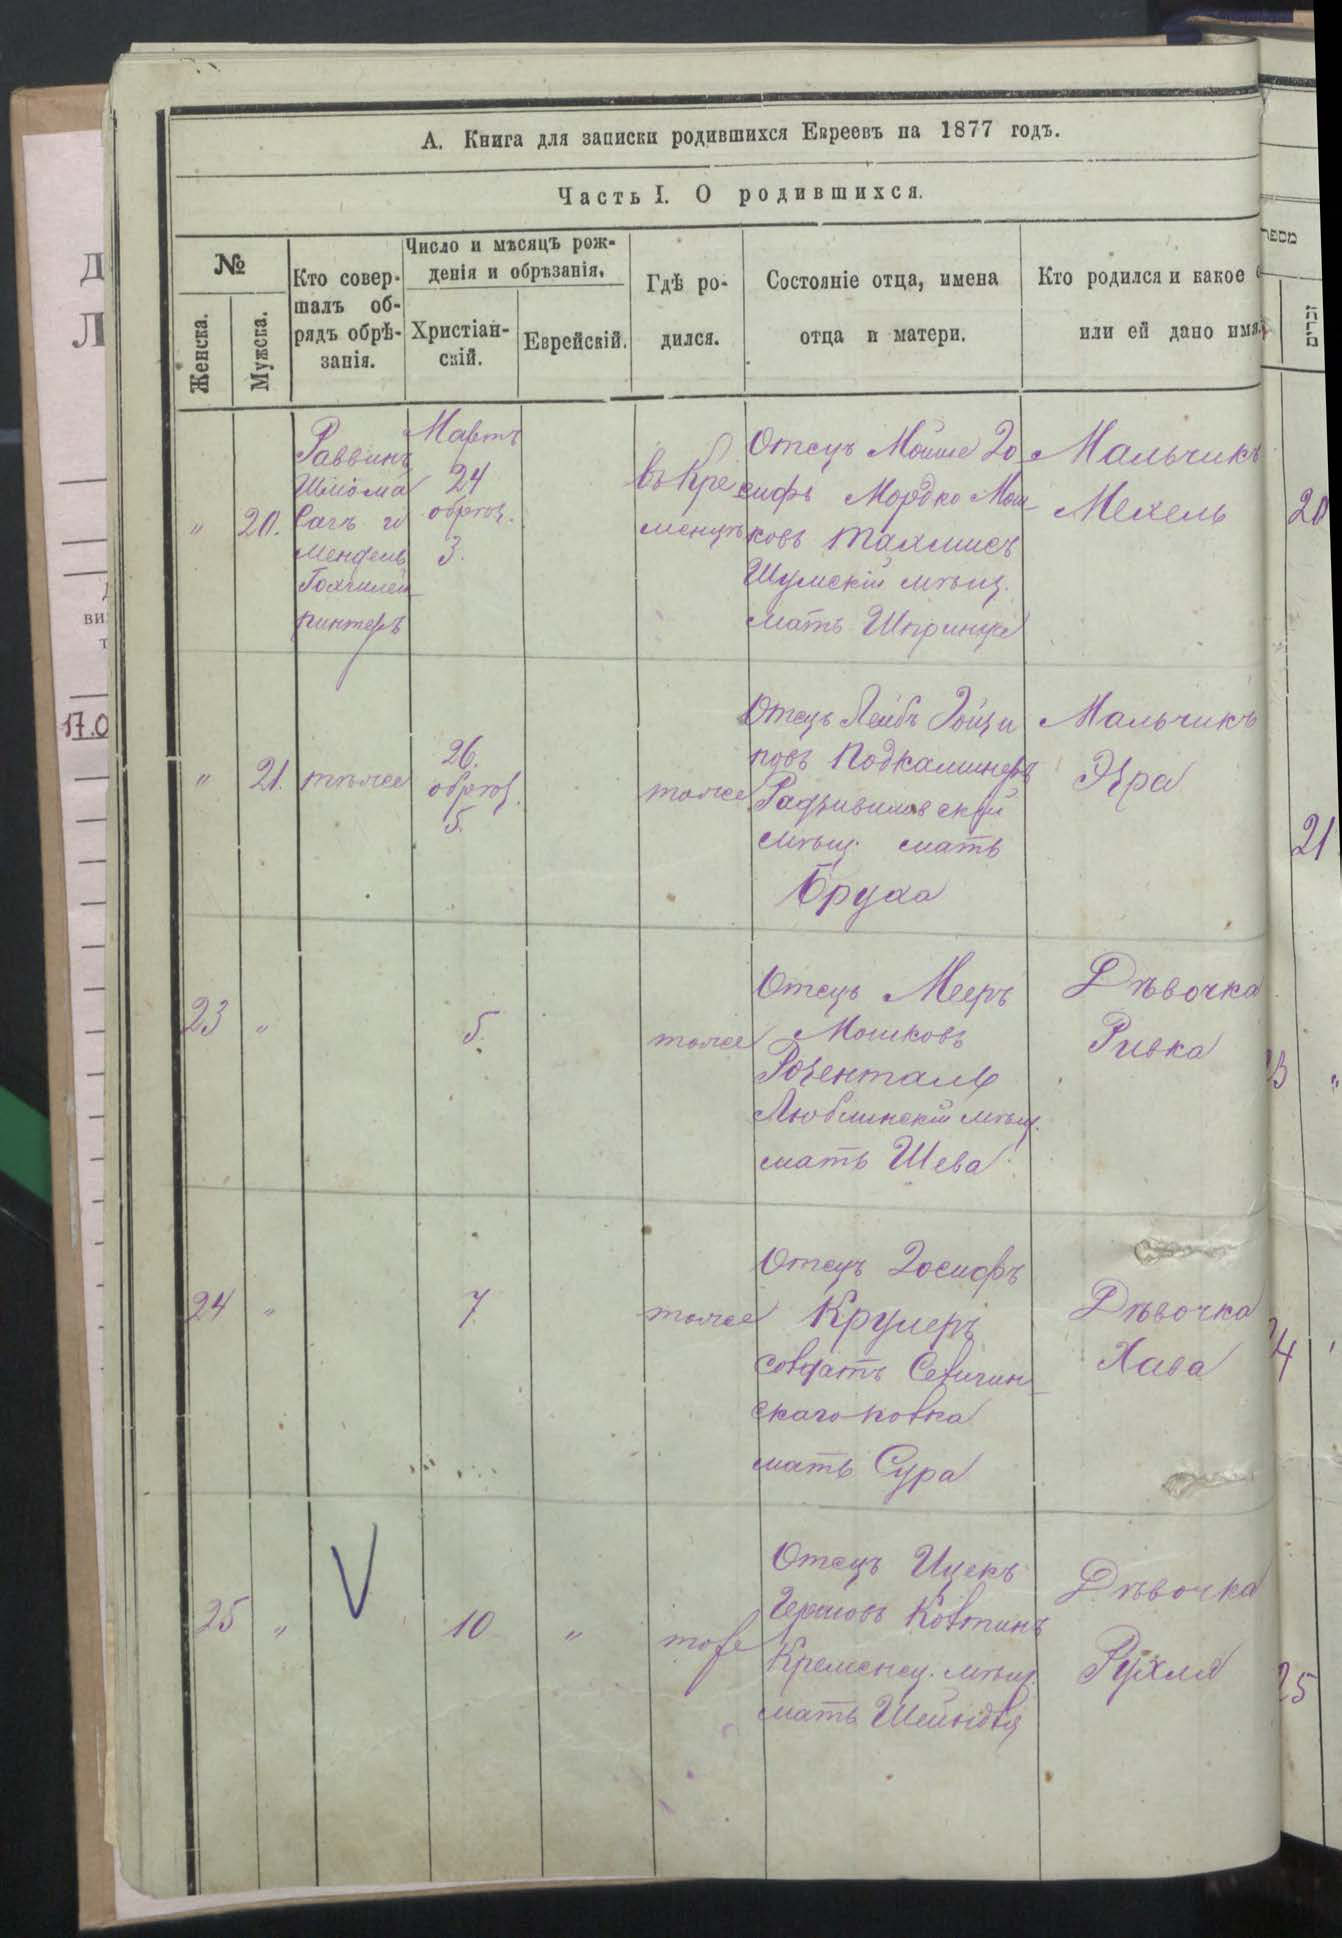 А. Книга для записки родившихся Евреевъ на 1877 годъ.
Часть I. О родившихся.
№
Женска.
Мужска.
Кто совер-
шалъ об-
рядъ обрѣ-
занія.
Число и мѣсяцъ рож-
денія и обрѣзанія.
Христіан-
скій.
Еврейскій.
Гдѣ ро-
дился.
Состояніе отца, имена
отца и матери.
Кто родился и какое
или ей дано имя.
מספר
זכרים
" 20.
Раввинъ
Шлиома
Сагъ и
Мендель
пинтеръ
Мартъ
24
обрѣз.
3.
въ Кре
менцѣ
Отецъ Мойше Іо
сифъ Мордко Мош-
ковъ
Шумскій мѣщ.
мать Шпринца
Мальчикъ
Мехель
20
" 21.
тѣже
26.
обрѣз.
5.
тоже
Отецъ Лейбъ
повъ Подкаминеръ
Радзивиловскій
мѣщ. мать
Бруха
Мальчикъ
Эзра
21
23 "
5.
тоже
Отецъ Мееръ
Мошковъ
Розенталь
Люблинскій мѣщ.
мать Шева
Дѣвочка
Ривка
23 "
24 "
7
тоже
Отецъ Іосифъ
Крумеръ
солдатъ
скаго полка
мать Сура
Дѣвочка
Хава
24
V
25 "
10 "
тоже
Отецъ Ицекъ
Гершовъ Ковтинъ
Кременец. мѣщ.
мать Шейндля
Дѣвочка
Рухля
25
17.0